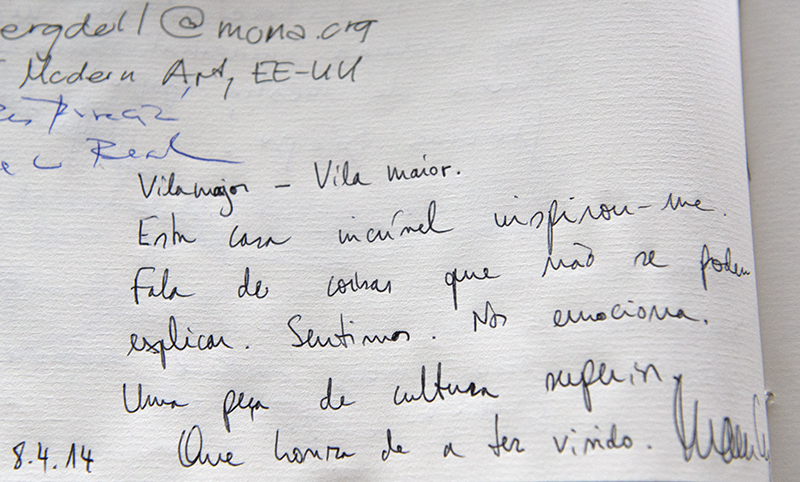 ergdell@moma.org
Modern Art, EE-UU
Real
Vilamajor – Vila maior.
Esta casa incrível inspirou-me.
Fala de coisas que não se podem
explicar. Sentimos. Nos emociona.
Uma peça de cultura superior.
8.4.14 Que honra de a ter vivido.